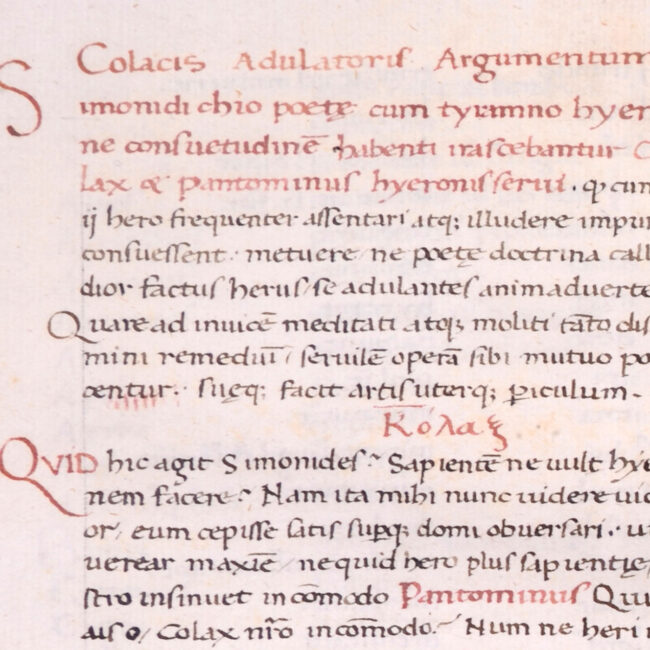 Colacis Adulatoris Argumentum
Simonidi chio poetę cum tyramno hyer
ne consuetudinē habenti irascebantur C
lax & pantominus hyeronis serui · qp cum
ij hero frequenter assentari atq; illudere impun
consuessent · metuere ne poetę doctrina call
dior factus herus / se adulantes animaduerte
Quare ad inuicē meditati atq; moliti tāto dis
mini remediū / seruilē operā sibi mutuo po
centur · suęq; facit artis uterq; periculum ·
Κολαξ
QVID hic agit Simonides? Sapientē ne uult hye
nem facere? Nam ita mihi nunc uidere uid
or / eum cepisse satis supq; domi obuersari · u
uerear maxīe ne quid hero plus sapientię
stro insinuet incōmodo Pantominus Qui
ais o / Colax nr̄o incōmodo · Num ne heri